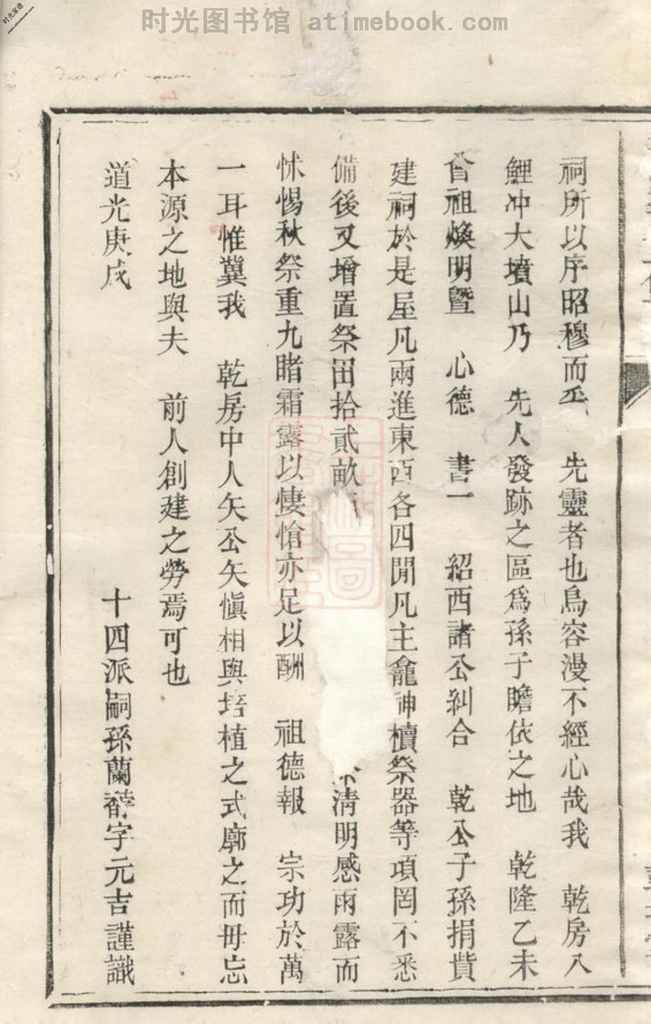 时光图书馆 atimebook.com
祠所以序昭穆而妥　先靈者也烏容漫不經心哉我　乾房入
鯉冲大墳山乃　先人發跡之區為孫子瞻依之地　乾隆乙未
曾祖煥明暨　心德　書一　紹西諸公糾合　乾公子孫捐貲
建祠於是屋凡兩進東西各四間凡主龕神櫝祭器等項罔不悉
備後又增置祭田拾貳畝清明感雨露而
怵惕秋祭重九睹霜露以悽愴亦足以酬　祖德報　宗功於萬
一耳惟冀我　乾房中人矢公矢慎相與培植之式廓之而毋忘
本源之地與夫　前人創建之勞焉可也
道光庚戌
十四派嗣孫蘭字元吉謹識